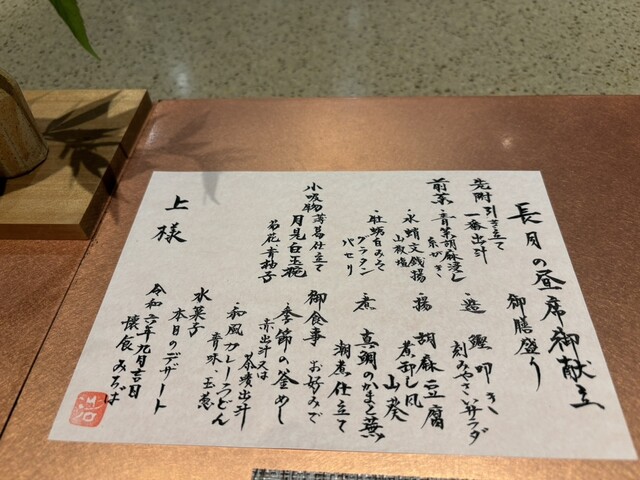 長月の昼席御献立
御膳盛り
先附 引き立て
一番出汁
前菜・青菜胡麻浸し
糸がき
・水蛸文銭揚
山椒塩
・牡蛎白みそ
グラタン
パセリ
小吸物 薄葛仕立て
月見白玉椀
菊花 青柚子
・造 鰹叩き
刻みやさいサラダ
・揚 胡麻豆腐
煮卸し風
山葵
・煮 真鯛のかまと蕪
潮煮仕立て
御食事 お好みで
・季節の釜めし
赤出汁又は
茶漬出汁
・和風カレーうどん
青味、玉葱
水菓子
本日のデザート
令和六年九月吉日
懐食 みちば
上様